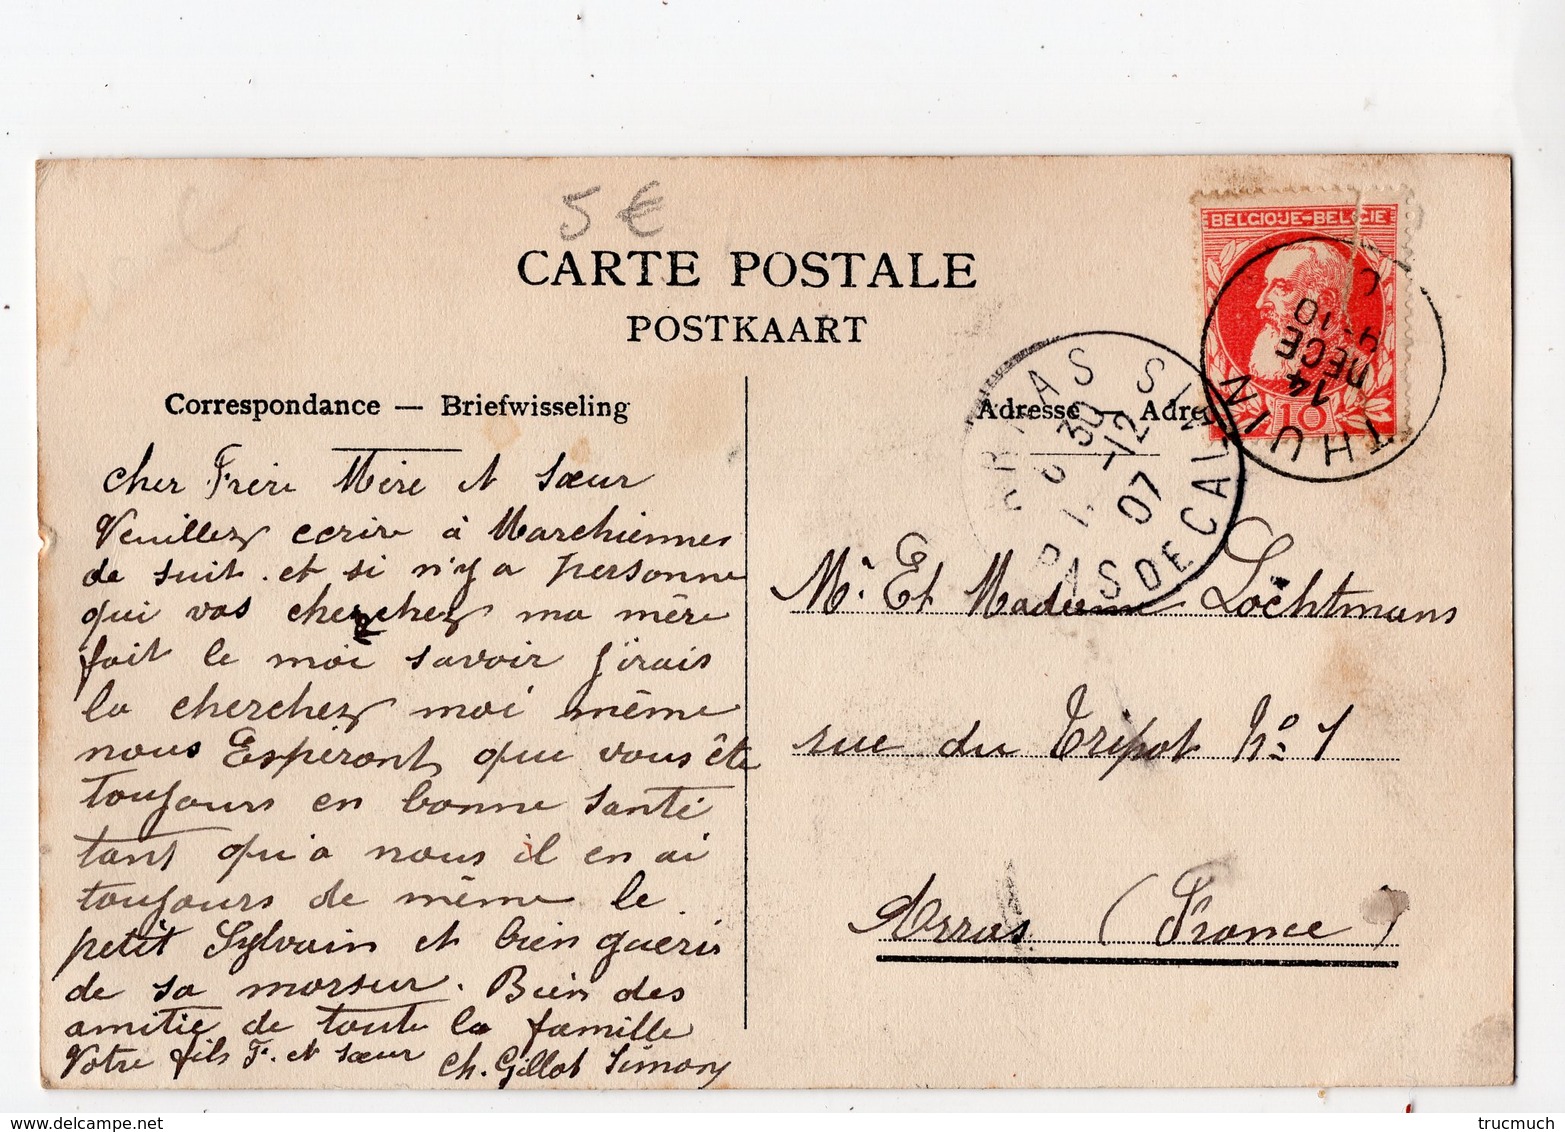 5 €
CARTE POSTALE
POSTKAART
BELGIQUE-BELGIE
10
THUIN
14
DECE
9-10
ARRAS
PAS DE CALAIS
6 30
-12
07
Correspondance — Briefwisseling
Adresse — Adre
cher Frère Mère et Sœur
Veuillez ecrire à Marchiennes
de suit. et si n'y a personne
qui vas cherchez ma mère
fait le moi savoir j'irais
la cherchez moi même
nous Espéront que vous ête
toujours en bonne santé
tant qu'a nous il en ai
toujours de même le
petit Sylvain et bien guéris
de sa morsur. Bien des
amitie de toute la famille
Votre fils F. et sœur Ch. Gillot Simon
Mr Et Madame Lochtmans
rue du Tripot No 1
Arras (France)
trucmuch